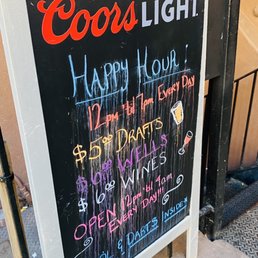 Coors LIGHT
HAPPY HOUR!
12PM 'til 7PM EVERY DAY
$5.00 DRAFTS
$6.00 WELLS
$6.00 WINES
OPEN 12PM 'til 4AM
EVERY DAY!!!
& DARTS INSIDE